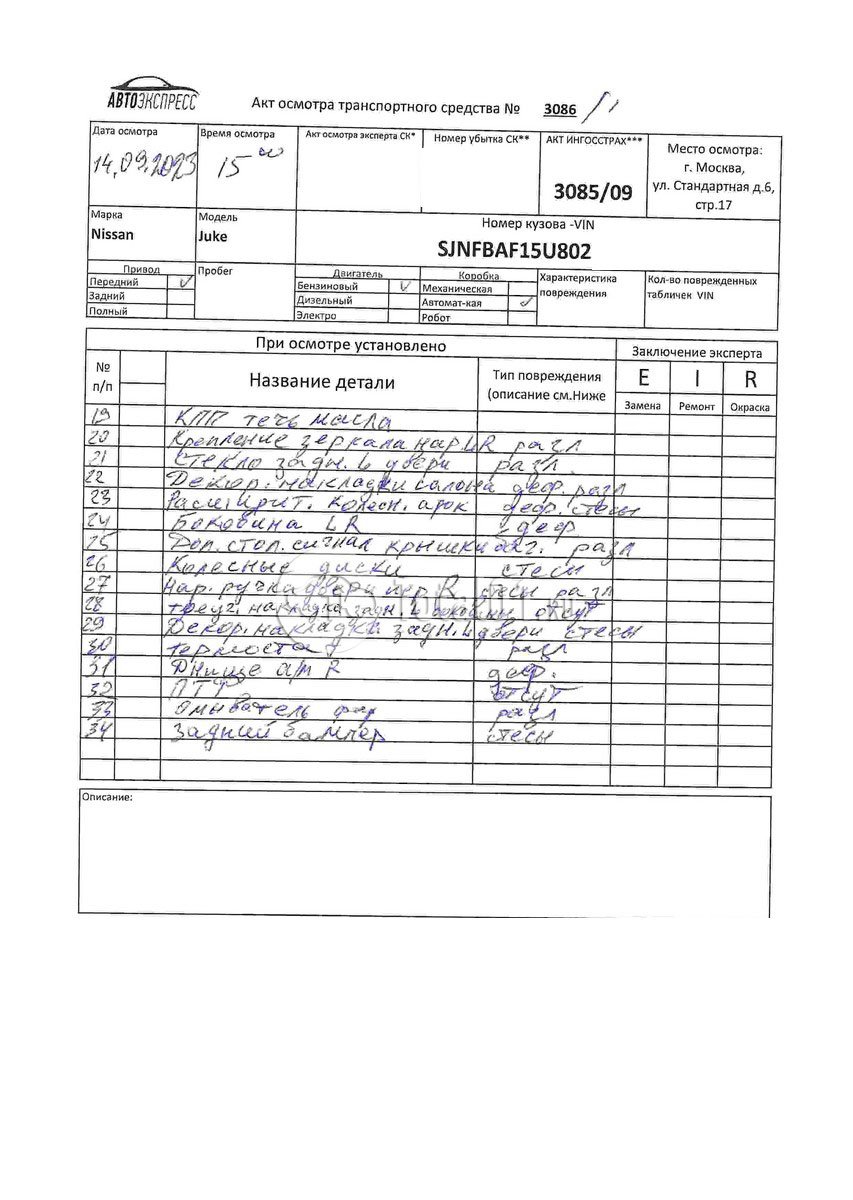 АВТОЭКСПРЕСС
Акт осмотра транспортного средства № 3086 / 1
Дата осмотра
14.09.2023
Время осмотра
15 00
Акт осмотра эксперта СК*
Номер убытка СК**
АКТ ИНГОССТРАХ***
3085/09
Место осмотра:
г. Москва,
ул. Стандартная д.6,
стр.17
Марка
Nissan
Модель
Juke
Номер кузова -VIN
SJNFBAF15U802
Привод
Передний V
Задний
Полный
Пробег
Двигатель
Бензиновый V
Дизельный
Электро
Коробка
Механическая
Автомат-кая V
Робот
Характеристика
повреждения
Кол-во поврежденных
табличек VIN
При осмотре установлено
Заключение эксперта
№
п/п
Название детали
Тип повреждения
(описание см.Ниже
E I R
Замена Ремонт Окраска
19 КПП течь масла
20 Крепление зеркала нар. LR разл
21 Стекло задн. L двери разл.
22 Декор. накладки салона деф. разл
23 Расширит. колесн. арок деф. стесы
24 Боковина LR деф
25 Доп. стоп. сигнал крышки баг. разл
26 Колесные диски стесы
27 Нар. ручка двери пер R стесы разл
28 треуг. накладка задн. L боковины отсут
29 Декор. накладка задн. L двери стесы
30 термостат разл
31 Днище а/м R деф.
32 ПТФ отсут
33 Омыватель фар разл
34 Задний бампер стесы
Описание: